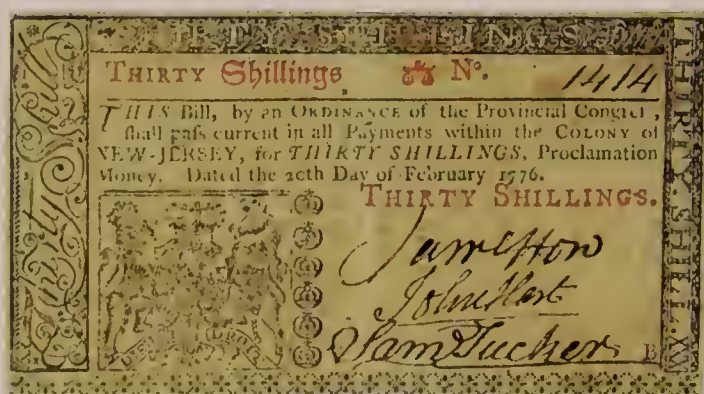 THIRTY SHILLINGS.
THIRTY Shillings, No. 1414
THIS Bill, by an ORDINANCE of the Provincial Congress,
shall pass current in all Payments within the COLONY of
NEW-JERSEY, for THIRTY SHILLINGS, Proclamation
Money. Dated the 20th Day of February 1776.
THIRTY SHILLINGS.
John Hart
Sam Tucker
THIRTY SHILL